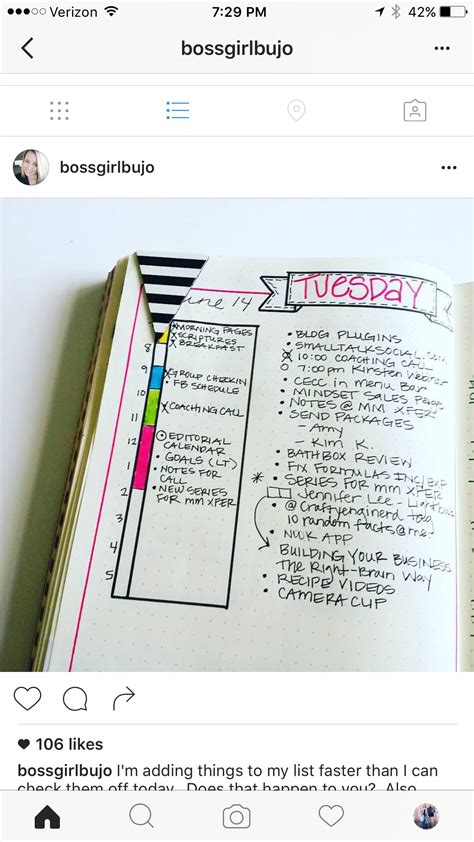 Verizon 7:29 PM 42%
bossgirlbujo
bossgirlbujo
June 14
TUESDAY
XMORNING PAGES
XSCRIPTURES
X BREAKFAST
8
9
XGROUP CHECKIN
• FB SCHEDULE
10
XCOACHING CALL
11
12
EDITORIAL
CALENDAR
• GOALS (LT)
1
• NOTES FOR
CALL
2
• NEW SERIES
FOR MM XFER
3
4
5
• BLOG PLUGINS
• SMALLTALKSOCIAL.COM
10:00 COACHING CALL
7:00pm Kirsten
• CECC in MENU Bar
• MINDSET SALES Page
• NOTES @ MM XFER
• SEND PACKAGES
- Amy
- Kim K.
• BATHBOX REVIEW
• FIX FORMULAS INC/EXP
* • SERIES FOR MM XFER
Jennifer Lee -
• @craftyengineerd
10 random facts@me!
• NOOK APP
BUILDING YOUR BUSINESS
The Right-Brain Way
• RECIPE VIDEOS
• CAMERA CLIP
106 likes
bossgirlbujo I'm adding things to my list faster than I can
check them off today. Does that happen to you? Also